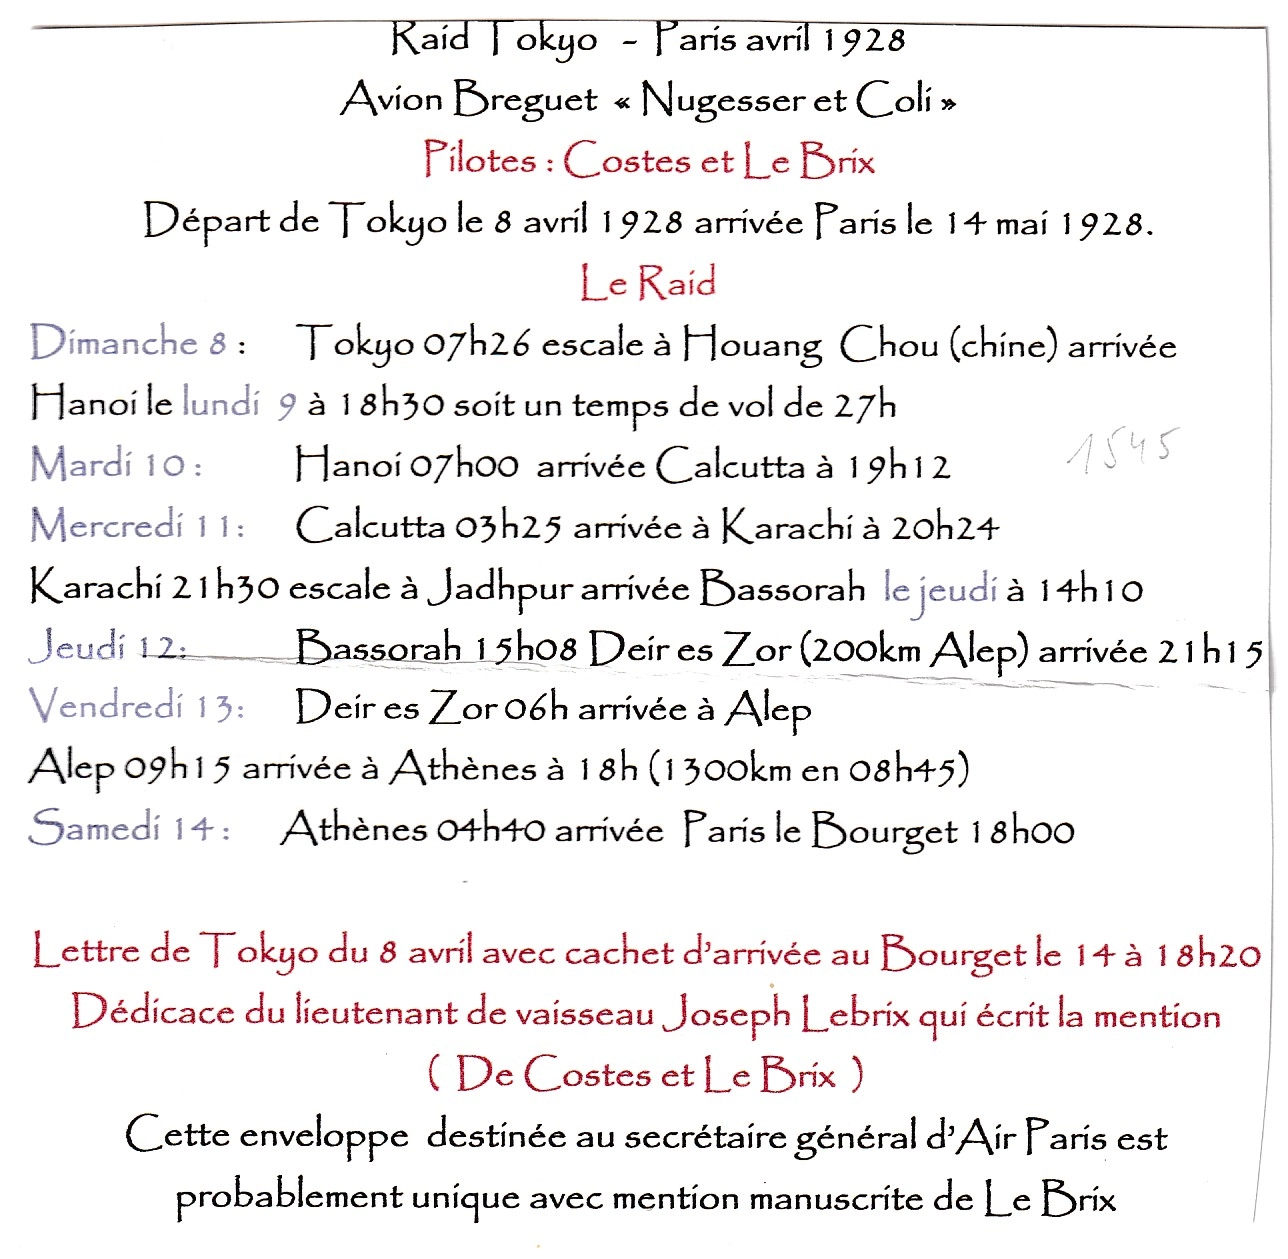 Raid Tokyo - Paris avril 1928
Avion Breguet « Nugesser et Coli »
Pilotes : Costes et Le Brix
Départ de Tokyo le 8 avril 1928 arrivée Paris le 14 mai 1928.
Le Raid
Dimanche 8 : Tokyo 07h26 escale à Houang Chou (chine) arrivée
Hanoi le lundi 9 à 18h30 soit un temps de vol de 27h
Mardi 10 : Hanoi 07h00 arrivée Calcutta à 19h12
1545
Mercredi 11 : Calcutta 03h25 arrivée à Karachi à 20h24
Karachi 21h30 escale à Jadhpur arrivée Bassorah le jeudi à 14h10
Jeudi 12: Bassorah 15h08 Deir es Zor (200km Alep) arrivée 21h15
Vendredi 13: Deir es Zor 06h arrivée à Alep
Alep 09h15 arrivée à Athènes à 18h (1300km en 08h45)
Samedi 14 : Athènes 04h40 arrivée Paris le Bourget 18h00
Lettre de Tokyo du 8 avril avec cachet d'arrivée au Bourget le 14 à 18h20
Dédicace du lieutenant de vaisseau Joseph Lebrix qui écrit la mention
( De Costes et Le Brix )
Cette enveloppe destinée au secrétaire général d'Air Paris est
probablement unique avec mention manuscrite de Le Brix